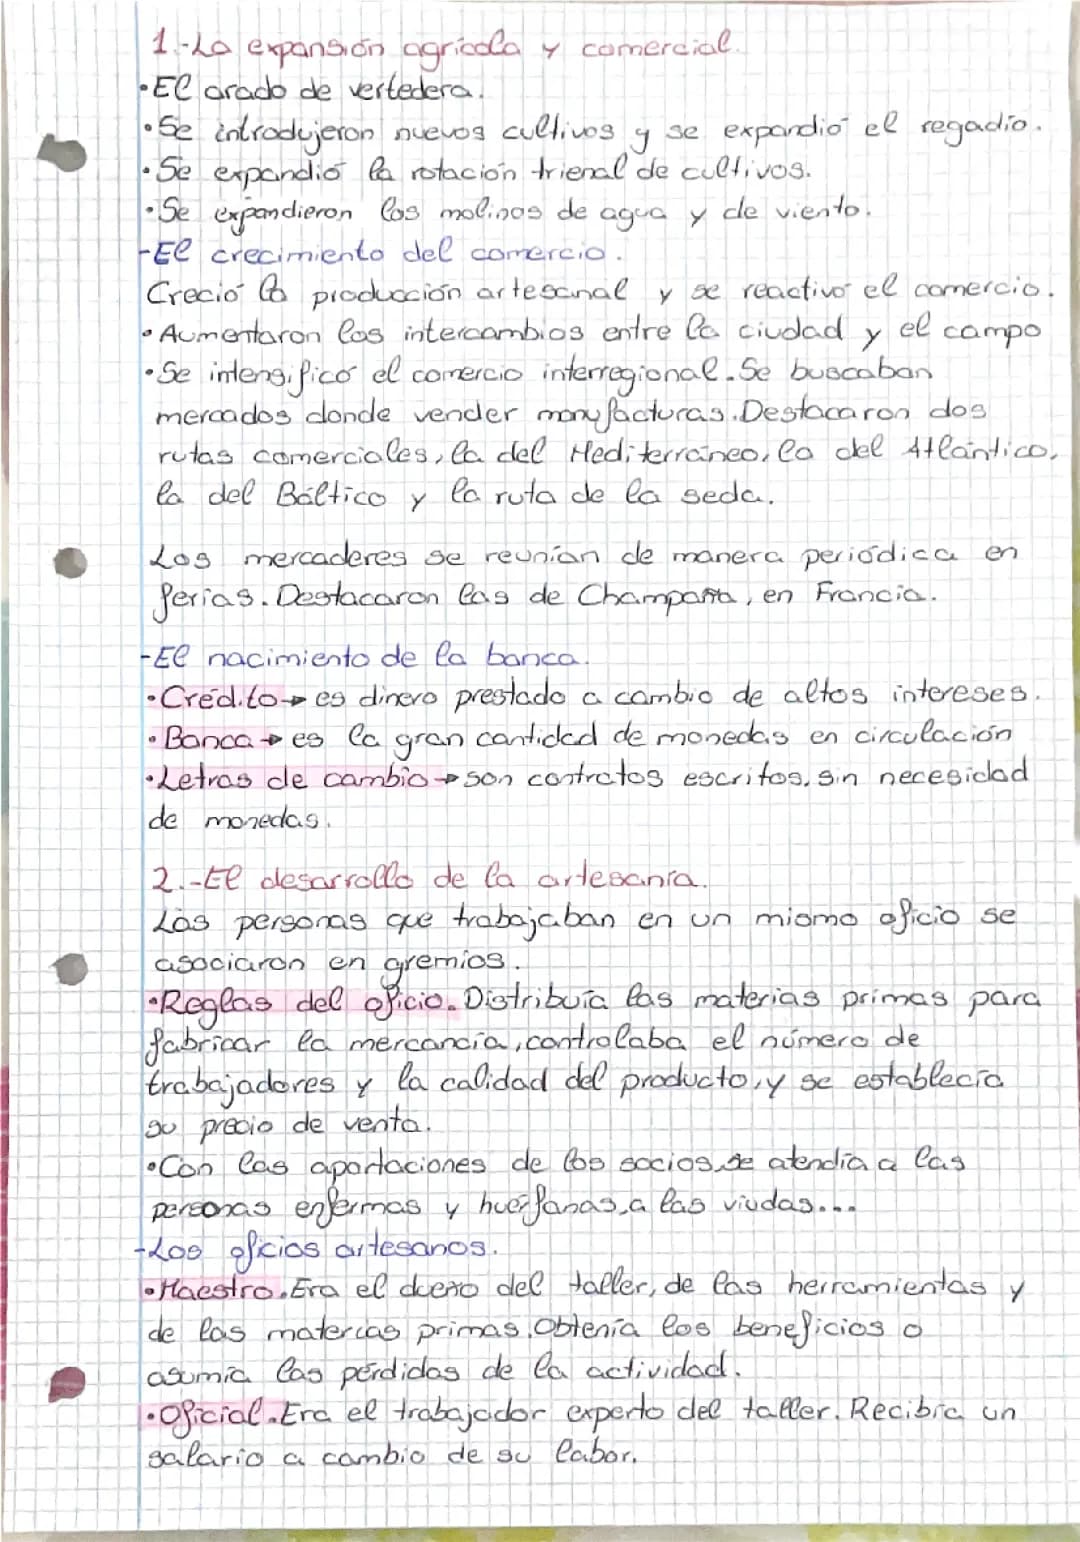 1.-La expansión agrícola y comercial.
·El arado de vertedera.
·Se introdujeron nuevos cultivos y se expandió el regadío.
·Se expandió la rotación trienal de cultivos.
·Se expandieron los molinos de agua y de viento.
-El crecimiento del comercio.
Creció la producción artesanal y se reactivó el comercio.
·Aumentaron los intercambios entre la ciudad y el campo
·Se intensificó el comercio interregional. Se buscaban
mercados donde vender manufacturas. Destacaron dos
rutas comerciales, la del Mediterráneo, la del Atlántico,
la del Báltico y la ruta de la seda.
Los mercaderes se reunían de manera periódica en
ferias. Destacaron las de Champaña, en Francia.
-El nacimiento de la banca.
·Crédito→ es dinero prestado a cambio de altos intereses.
·Banca→ es la gran cantidad de monedas en circulación
·Letras de cambio→ son contratos escritos, sin necesidad
de monedas.
2.-El desarrollo de la artesanía.
Las personas que trabajaban en un mismo oficio se
asociaron en gremios.
·Reglas del oficio. Distribuía las materias primas para
fabricar la mercancía, controlaba el número de
trabajadores y la calidad del producto, y se establecía
su precio de venta.
·Con las aportaciones de los socios, se atendía a las
personas enfermas y huérfanas, a las viudas...
-Los oficios artesanos.
·Maestro. Era el dueño del taller, de las herramientas y
de las materias primas. Obtenía los beneficios o
asumía las pérdidas de la actividad.
·Oficial. Era el trabajador experto del taller. Recibía un
salario a cambio de su labor.